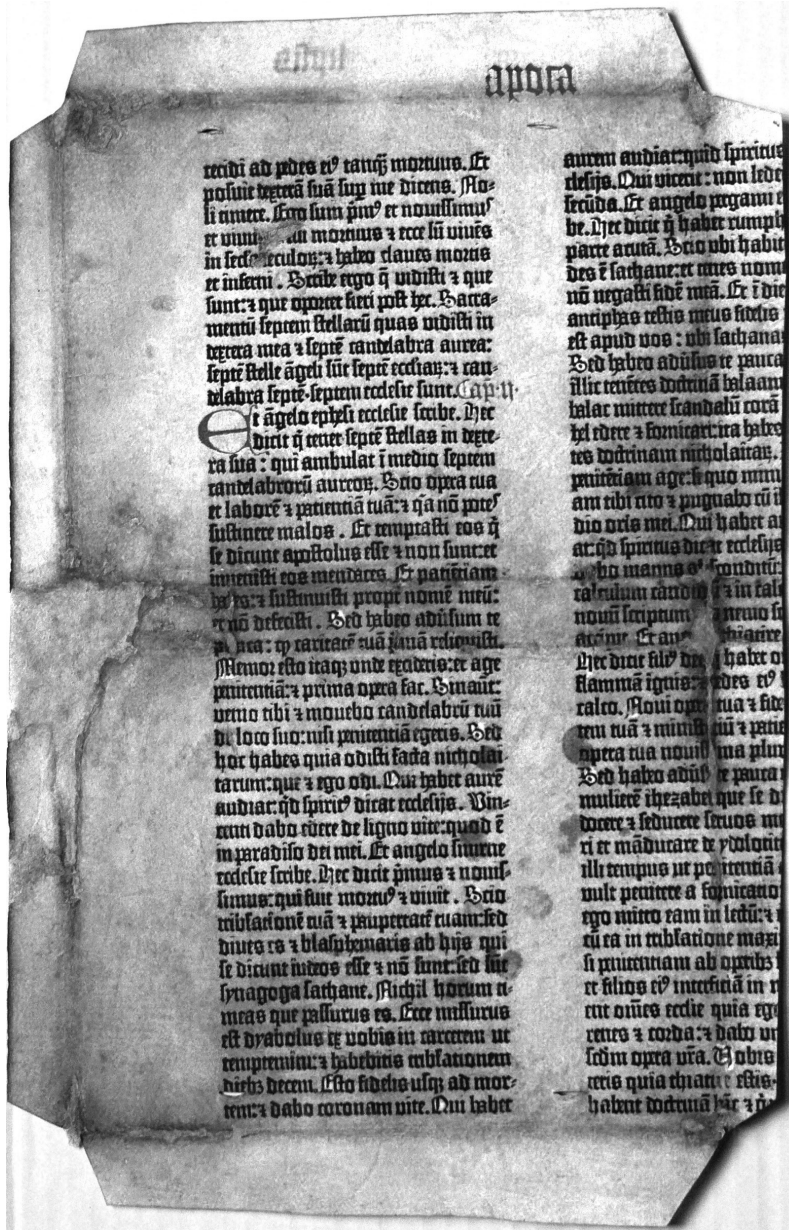 apoca
cecidi ad pedes eiꝰ tanqȝ mortuus. Et
posuit dexterā suā sup me dicens. No-
li timere. Ego sum p̄mꝰ et nouissimus
et viuu mortuus ⁊ ecce sū viuēs
in ⁊ habeo claues mortis
et inferni. Scribe ergo q̄ vidisti ⁊ que
sunt: ⁊ que oportet fieri post hec. Sacra-
mentū septem stellarū quas vidisti in
dextera mea ⁊ septē candelabra aurea:
septē stelle āgeli sūt septē ecclīaꝝ: ⁊ can-
delabra septē·septem ecclesie sunt. Cap·ij·
Et āgelo ephesi ecclesie scribe. Hec
dicit q̄ tenet septē stellas in dexte-
ra sua: qui ambulat ī medio septem
candelabrorū aureoꝝ. Scio opera tua
et laborē ⁊ patientiā tuā: ⁊ q̄a nō potes
sustinere malos. Et temptasti eos q̄
se dicunt apostolus esse ⁊ non sunt: et
inuenisti eos mendaces. Et patiētiam
habes: ⁊ sustinuisti propt nomē meū:
et nō defecisti. Sed habeo adūsum te
pauca: ꝙ caritatē tuā p̄mā reliquisti.
Memor esto itaqȝ unde excideris: et age
penitentiā: ⁊ prima opera fac. Sinaūt:
venio tibi ⁊ mouebo candelabrū tuū
de loco suo: nisi penitentiā egeris. Sed
hoc habes quia odisti facta nicholai-
tarum: que ⁊ ego odi. Qui habet aurē
audiat: qd spiritꝰ dicat ecclesijs. Vin-
centi dabo edere de ligno vite: quod ē
in paradiso dei mei. Et angelo smirne
ecclesie scribe. Hec dicit p̄mus ⁊ nouis-
simus: qui fuit mortuꝰ ⁊ viuit. Scio
tribłationē tuā ⁊ paupertatē tuam: sed
diues es ⁊ blasphemaris ab hijs qui
se dicunt iudeos esse ⁊ nō sunt: sed sūt
synagoga sathane. Nichil horum ti-
meas que passurus es. Ecce missurus
est dyabolus ex vobis in carcerem ut
temptemini: ⁊ habebitis tribłationem
diebȝ decem. Esto fidelis usqȝ ad mor-
tem: ⁊ dabo coronam vite. Qui habet
aurem audiat: quid spiritus
clesijs. Qui vicerit: non lede
secūda. Et angelo pergami e
be. Hec dicit q̄ habet rumph
parte acutā. Scio ubi habit
des ē sathane: et tenes nom
nō negasti fidē meā. Et ī die
antiphas testis meus fidelis
est apud vos: ubi sathanas
Sed habeo adūsus te pauca
illic tenētes doctrinā balaam
balac mittere scandalū corā
hel edere ⁊ fornicari: ita habes
tes doctrinam nicholaitaꝝ.
penitētiam age: si quo minu
am tibi cito ⁊ pugnabo cū il
dio oris mei. Qui habet au
at: qd spiritus dicat ecclesijs
bo manna absconditū:
calculum cādidū ⁊ in calc
nouū scriptum nemo sc
accipit. Et ang thiatire
Hec dicit filiꝰ dei habet oc
flammā ignis: ⁊ pedes eiꝰ s
calco. Noui opera tua ⁊ fide
tem tuā ⁊ ministeriū ⁊ patie
opera tua nouissima plur
Sed habeo adūsus te pauca
mulierē ihezabel que se d
docere ⁊ seducere seruos me
ri et māducare de ydolotit
illi tempus ut penitentiā
vult penitere a fornicatio
ego mitto eam in lectū: ⁊
cū ea in tribłatione maxi
si penitentiam ab opibȝ
et filios eiꝰ interficiā in m
ent om̄es ecclie quia ego
renes ⁊ corda: ⁊ dabo vn
scdm opera vr̄a. Vobis
ceteris quia thiatire estis
habent doctrinā hāc ⁊ q̄